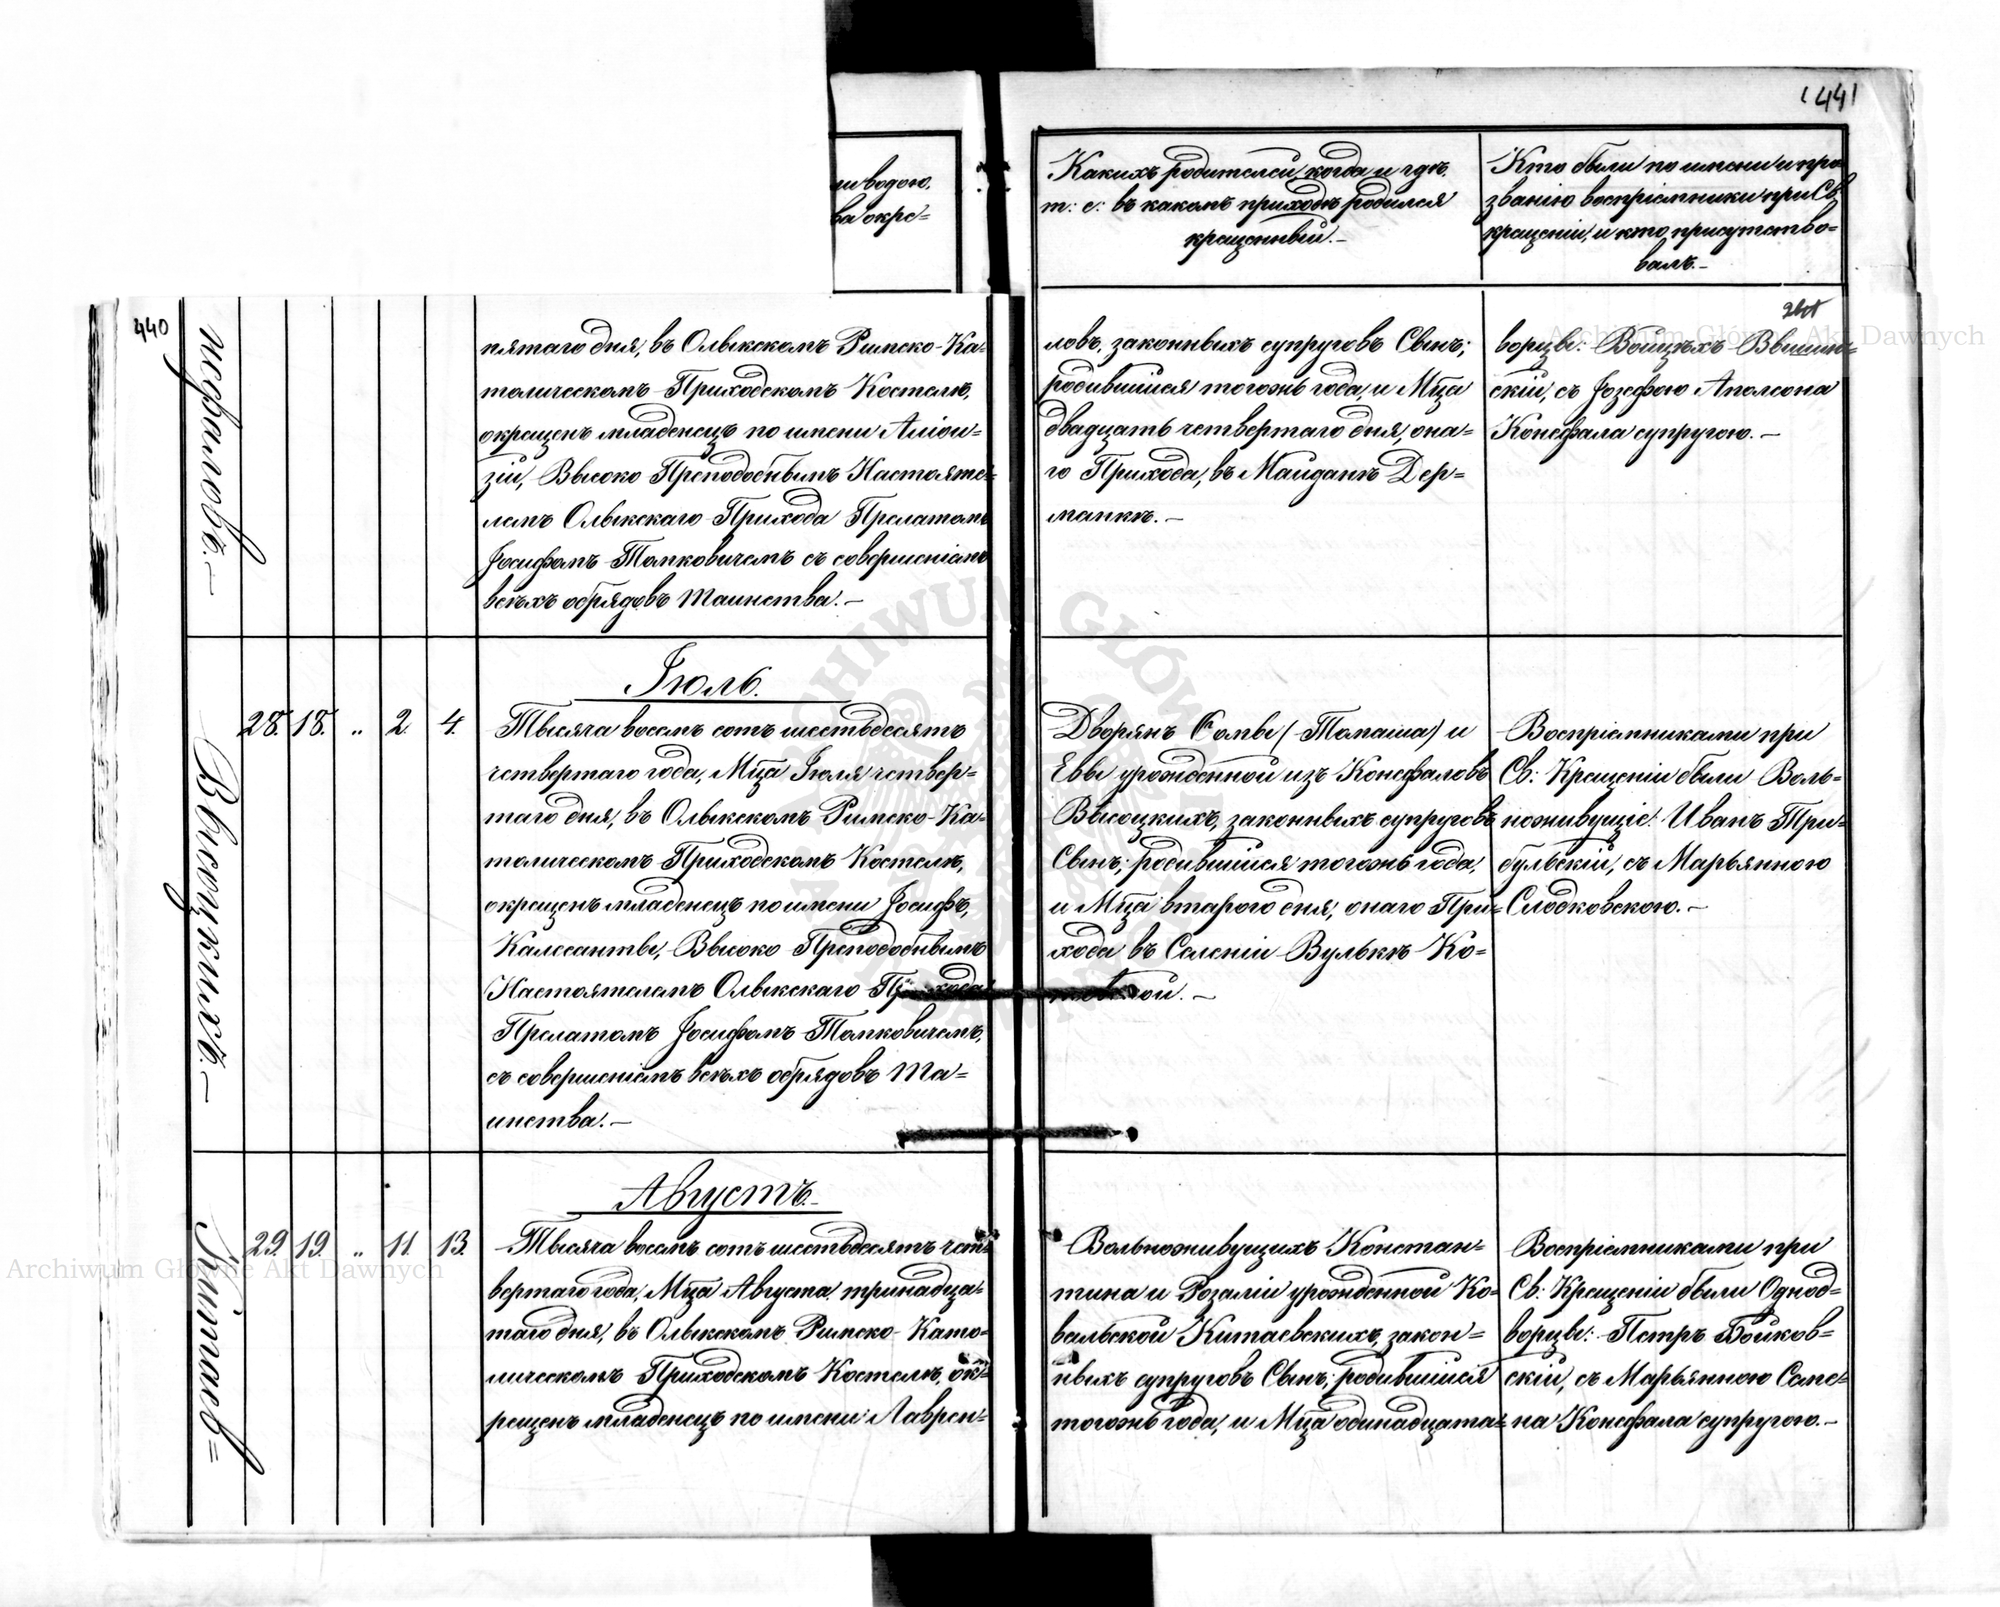 441
ли водою,
ва окре=
Какихъ родителей, когда и гдѣ,
т: е: въ какомъ приходѣ родился
крещенный.—
Кто были по имени и про=
званію воспріемники при Св.
крещеніи, и кто присутство=
валъ.—
440
нефаловъ.—
пятаго дня, въ Олыкскомъ Римско-Ка=
толическомъ Приходскомъ Костелѣ,
окрещенъ младенецъ по имени Аліои=
зій, Высоко Преподобнымъ Настояте=
лемъ Олыкскаго Прихода Прелатомъ
Іосифомъ Томковичемъ съ совершеніемъ
всѣхъ обрядовъ таинства.—
ловъ, законныхъ супруговъ Сынъ;
родившійся тогожъ года, и Мца
двадцать четвертаго дня, она=
го Прихода, въ Майданѣ Дер=
манкѣ.—
ворцы: Войцѣхъ Вышин=
скій, съ Іозефою Аполеона
Конефала супругою.—
Archiwum Główne Akt Dawnych
Высоцкихъ.—
28. 18. „ 2 4.
Іюль.
Тысяча восемъ сотъ шестьдесятъ
четвертаго года, Мца Іюля четвер=
таго дня, въ Олыкскомъ Римско-Ка=
толическомъ Приходскомъ Костелѣ,
окрещенъ младенецъ по имени Іосифъ,
Калесанты, Высоко Преподобнымъ
Настоятелемъ Олыкскаго Прихода
Прелатомъ Іосифомъ Томковичемъ,
съ совершеніемъ всѣхъ обрядовъ та=
инства.—
Дворянъ Фомы (Томаша) и
Евы урожденной изъ Конефаловъ
Высоцкихъ, законныхъ супруговъ
Сынъ; родившійся тогожъ года,
и Мца втарого дня, онаго При=
хода въ Селеніи Вулькѣ Ко=
Воспріемниками при
Св: Крещеніи были Воль=
ноживущіе: Иванъ Три=
бульскій, съ Марьянною
Слодковскою.—
Китаев=
29. 19. „ 11. 13.
Августъ.
Тысяча восемъ сотъ шестьдесятъ чет=
вертаго года, Мца Августа тринадца=
таго дня, въ Олыкскомъ Римско-Като=
лическомъ Приходскомъ Костелѣ, ок=
рещенъ младенецъ по имени Лаврен=
Вольноживущихъ Констан=
тина и Розаліи урожденной Ко=
вальской Китаевскихъ, закон=
ныхъ супруговъ Сынъ; родившійся
тогожъ года, и Мца одинадцата=
Воспріемниками при
Св: Крещеніи были Однод=
ворцы: Петръ Бойков=
скій, съ Марьянною Семе=
на Конефала супругою.—
Archiwum Główne Akt Dawnych